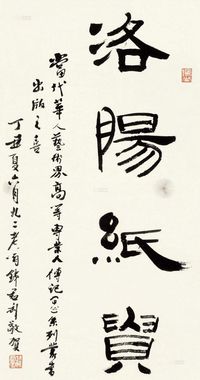 洛陽紙貴
當代華人藝術界高等專業人傳記系列叢書
出版之喜
丁丑夏六月九二老敬賀